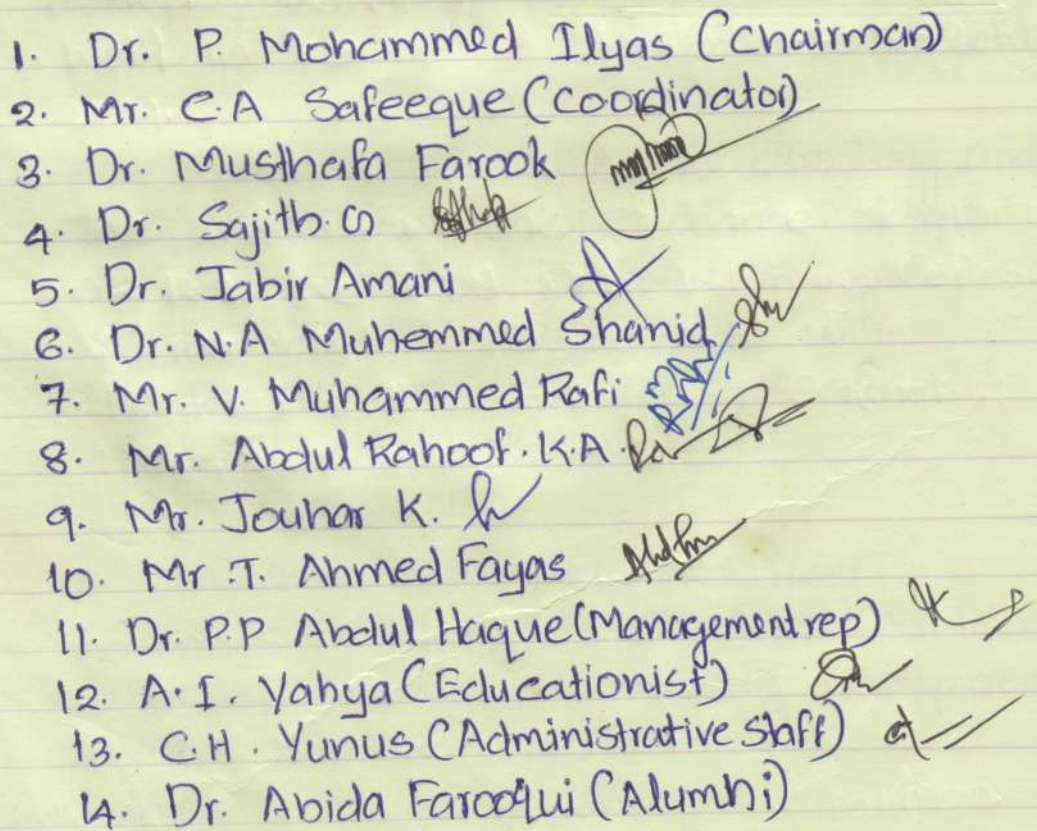 1. Dr. P. Mohammed Ilyas (Chairman)
2. Mr. C.A Safeeque (coordinator)
3. Dr. Musthafa Farook
4. Dr. Sajith. S
5. Dr. Jabir Amani
6. Dr. N.A Muhemmed Shanid
7. Mr. V. Muhammed Rafi
8. Mr. Abdul Rahoof. K.A.
9. Mr. Jouhar K.
10. Mr .T. Ahmed Fayas
11. Dr. P.P Abdul Haque (Management rep)
12. A.I. Yahya (Educationist)
13. C.H. Yunus (Administrative staff)
14. Dr. Abida Farooqui (Alumni)